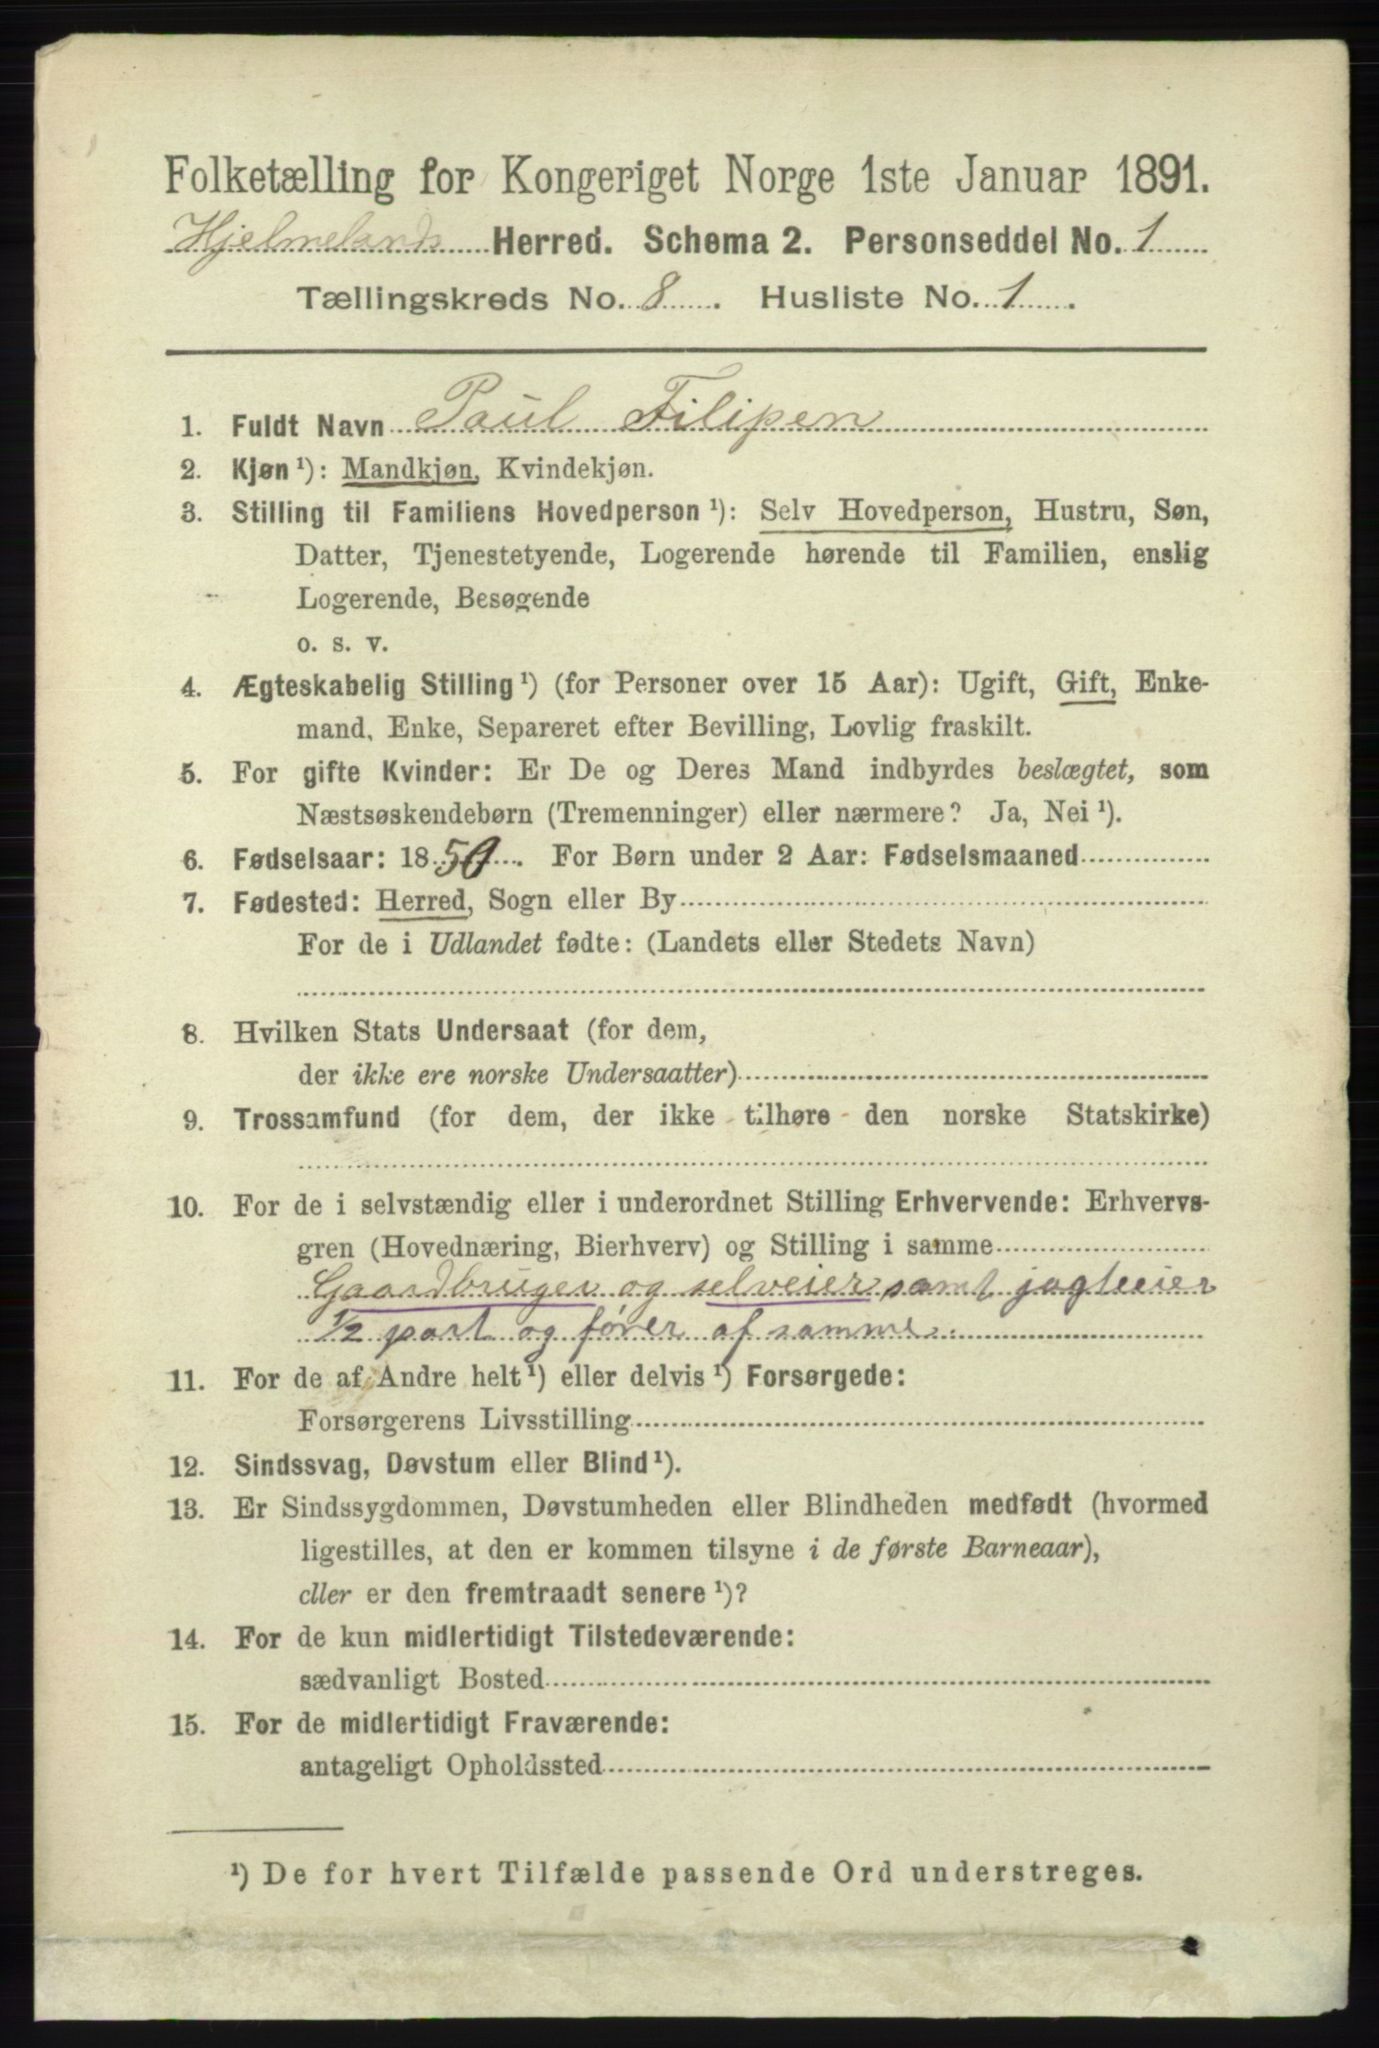 Folketælling for Kongeriget Norge 1ste Januar 1891.
Hjelmelands Herred. Schema 2. Personseddel No. 1
Tællingskreds No. 8. Husliste No. 1.
1. Fuldt Navn Paul Filipen
2. Kjøn ¹): Mandkjøn, Kvindekjøn.
3. Stilling til Familiens Hovedperson ¹): Selv Hovedperson, Hustru, Søn,
Datter, Tjenestetyende, Logerende hørende til Familien, enslig
Logerende, Besøgende
o. s. v.
4. Ægteskabelig Stilling ¹) (for Personer over 15 Aar): Ugift, Gift, Enke-
mand, Enke, Separeret efter Bevilling, Lovlig fraskilt.
5. For gifte Kvinder: Er De og Deres Mand indbyrdes beslægtet, som
Næstsøskendebørn (Tremenninger) eller nærmere? Ja, Nei ¹).
6. Fødselsaar: 1850. For Børn under 2 Aar: Fødselsmaaned
7. Fødested: Herred, Sogn eller By
For de i Udlandet fødte: (Landets eller Stedets Navn)
8. Hvilken Stats Undersaat (for dem,
der ikke ere norske Undersaatter)
9. Trossamfund (for dem, der ikke tilhøre den norske Statskirke)
10. For de i selvstændig eller i underordnet Stilling Erhvervende: Erhvervs-
gren (Hovednæring, Bierhverv) og Stilling i samme
Gaardbruger og selveier samt jagteeier
1/2 part og fører af samme.
11. For de af Andre helt ¹) eller delvis ¹) Forsørgede:
Forsørgerens Livsstilling
12. Sindssvag, Døvstum eller Blind ¹).
13. Er Sindssygdommen, Døvstumheden eller Blindheden medfødt (hvormed
ligestilles, at den er kommen tilsyne i de første Barneaar),
eller er den fremtraadt senere ¹)?
14. For de kun midlertidigt Tilstedeværende:
sædvanligt Bosted
15. For de midlertidigt Fraværende:
antageligt Opholdssted
¹) De for hvert Tilfælde passende Ord understreges.